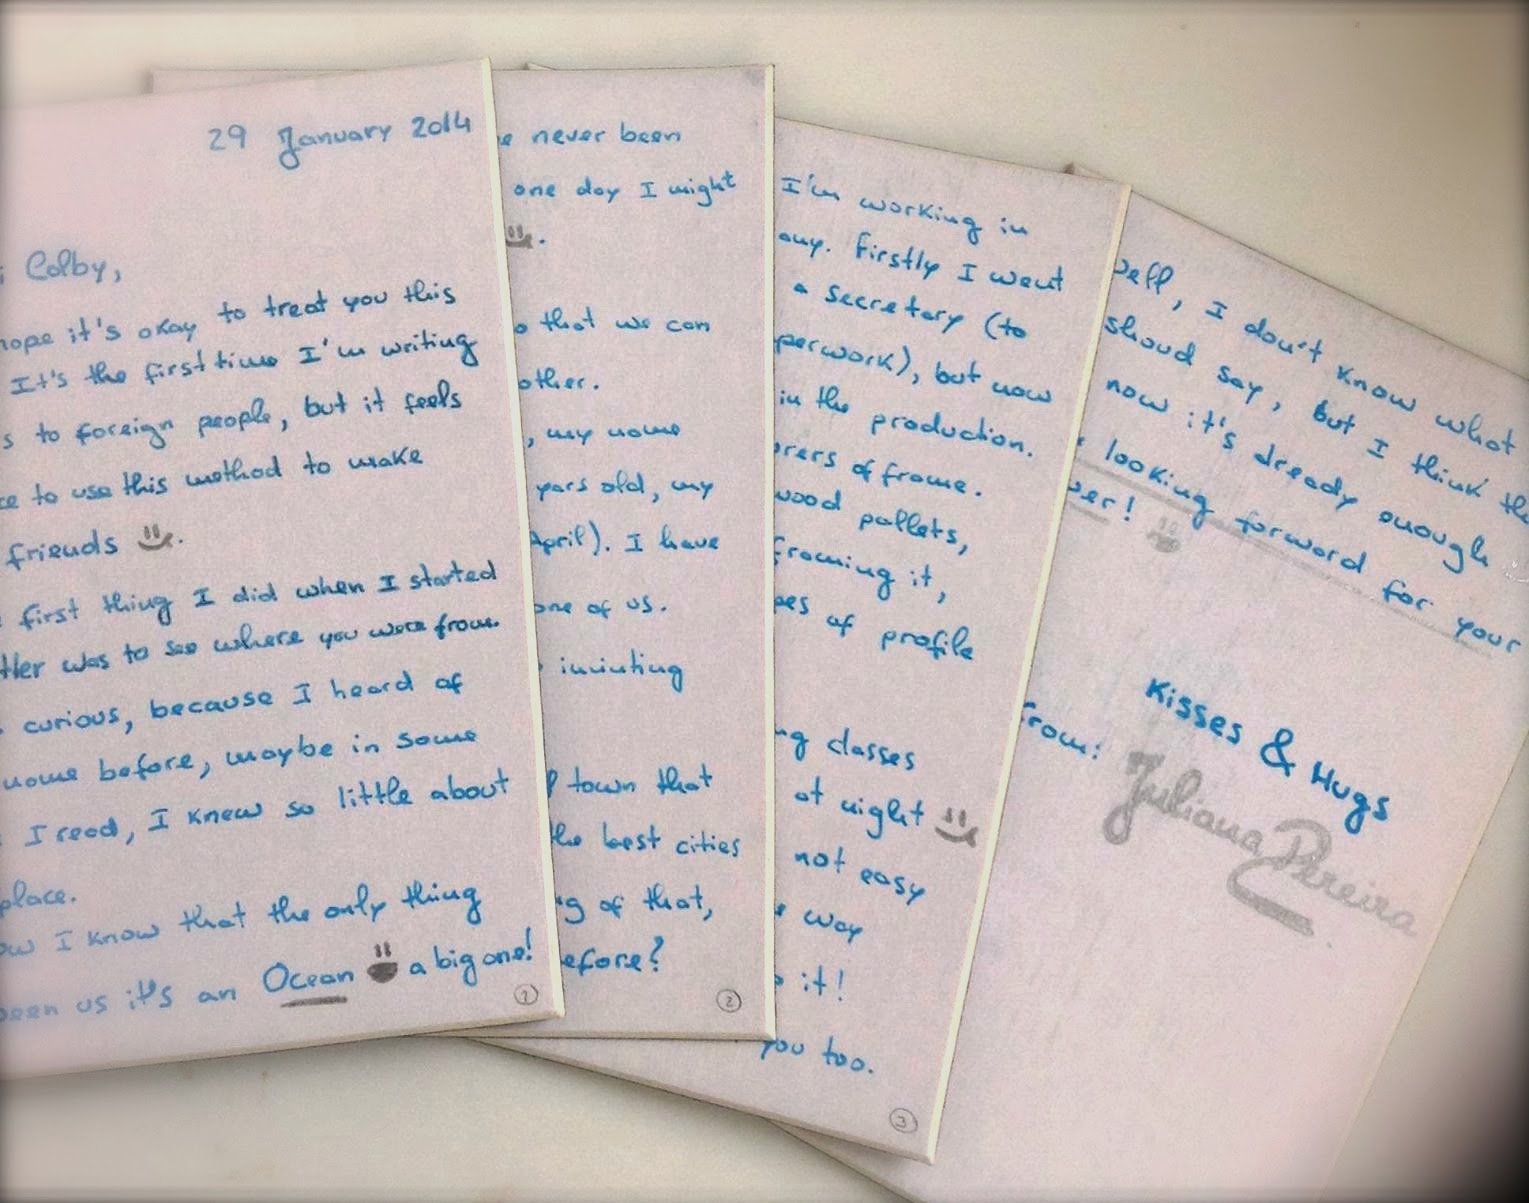 29 January 2014
Colby,
hope it's okay to treat you this
It's the first time I'm writing
s to foreign people, but it feels
ce to use this method to make
friends
first thing I did when I started
tter was to see where you were from.
curious, because I heard of
name before, maybe in some
I read, I knew so little about
place.
ow I know that the only thing
been us it's an Ocean a big one!
1
e never been
one day I might
.
o that we can
other.
, my name
years old, my
April). I have
one of us.
inviting
town that
the best cities
ng of that,
efore?
2
I'm working in
any. Firstly I went
a secretary (to
perwork), but now
in the production.
rers of frame.
wood pallets,
framing it,
pes of profile
ng classes
at night
not easy
way
it!
you too.
3
Well, I don't know what
shoud say, but I think the
now it's already enough
looking forward for your
wer!
Kisses & Hugs
From: Juliana Pereira